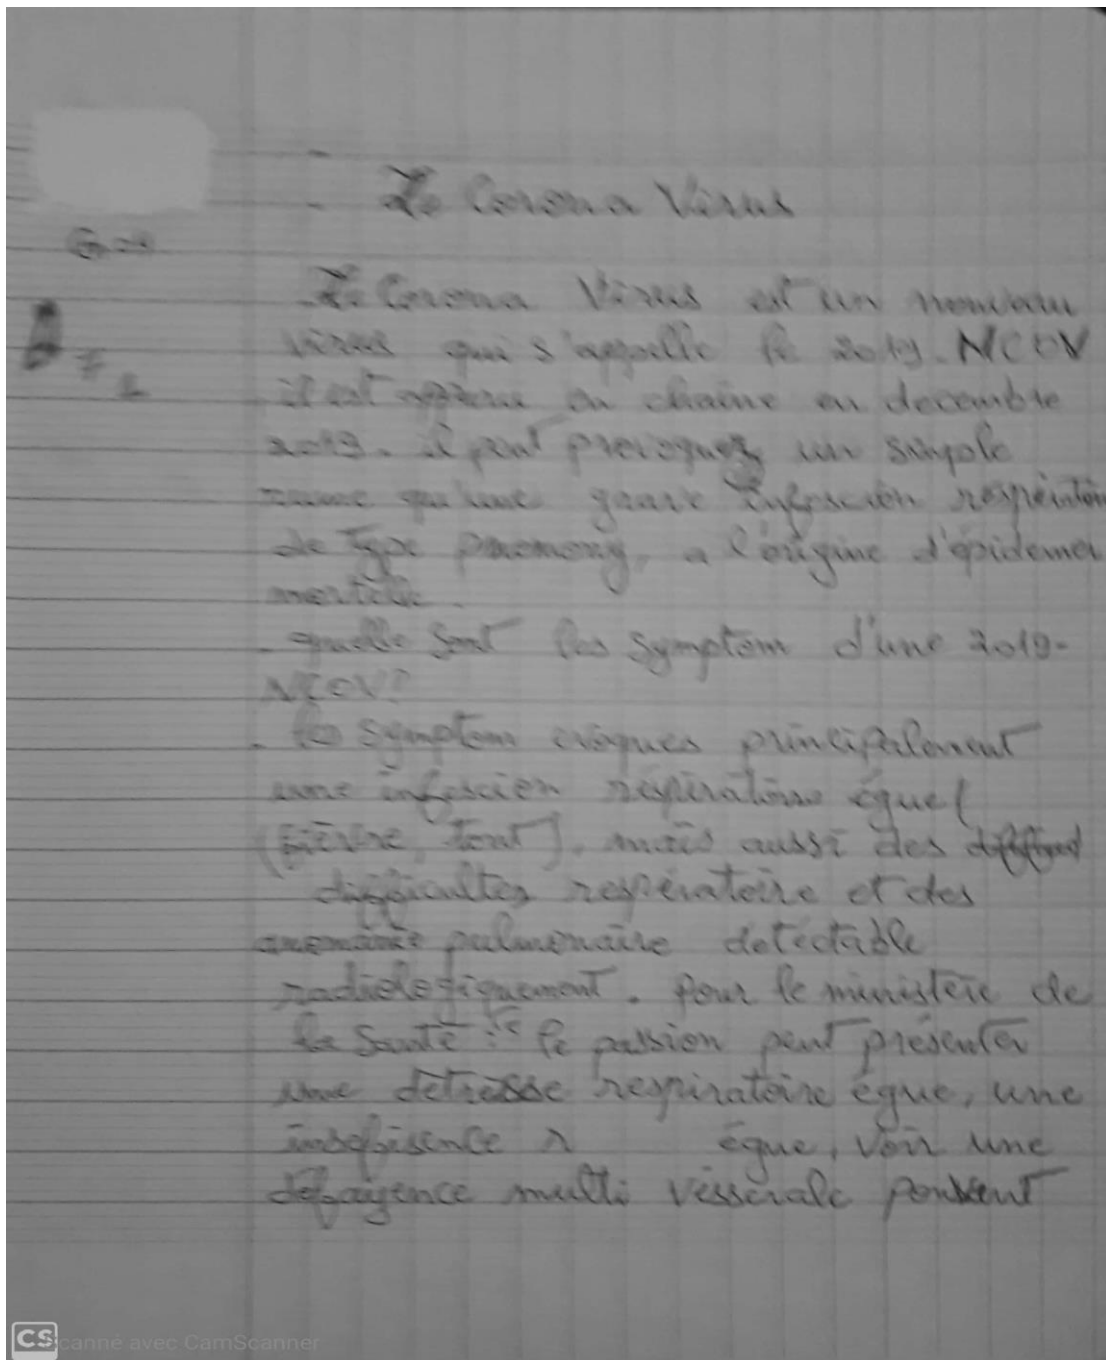 Le Corona Virus
Le Corona Virus est un nouveau
virus qui s'appelle le 2019. NCOV
il est apparu en chaine en decembre
2019. il peut provoquez un simple
rume qu'une grave infescion respiratoire
de Type pnemony, a l'origine d'épidemer
mortelle.
- quelle sont les symptom d'une 2019-
NCOV?
. les symptom evoques principalement
une infescion respiratoire égue (
(fièvre, tout), mais aussi des
difficultes respératoire et des
pulmonaire detectable
radiologiquement. pour le ministère de
la Santé : "le passion peut présenter
une detresse respiratoire égue, une
insefisence r égue, voir une
defayence multi visserale pouvent
CS Scanné avec CamScanner